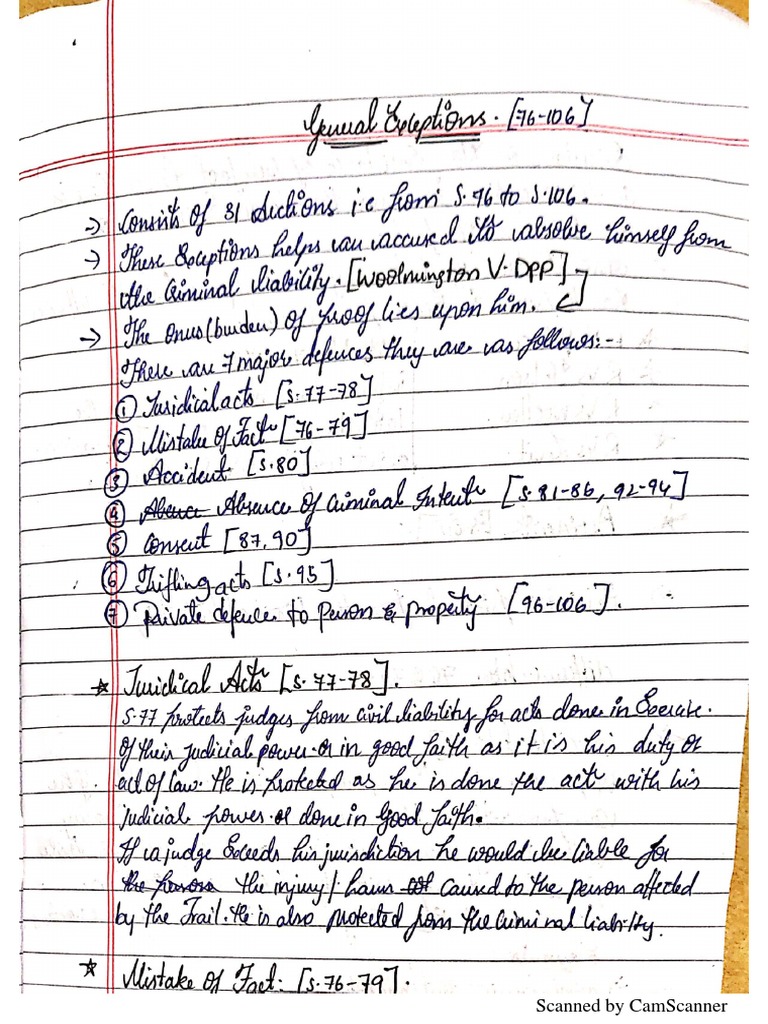 General Exceptions. [76-106]
→ Consists of 31 Sections i.e from S.76 to S.106.
→ These Exceptions helps an accused to absolve himself from
the Criminal liability. [Woolmington V. DPP]
→ The onus (burden) of proof lies upon him.
There are 7 major defences they are as follows:-
① Juridical acts [S.77-78]
② Mistake of Fact [76-79]
③ Accident [S.80]
④ Absence Of Criminal Intent [S.81-86, 92-94]
⑤ Consent [87,90]
⑥ Trifling acts [S.95]
⑦ Private defence to person & property [96-106].
☆ Juridical Acts [S.77-78].
S.77 protects judges from civil liability for acts done in Exercise.
Of their judicial power. or in good faith as it is his duty or
act of law. He is protected as he is done the act with his
judicial power or done in Good faith.
If a judge Exceeds his jurisdiction he would be liable for
the injury/harm caused to the person affected
by the Trail. He is also protected from the Criminal liability.
☆ Mistake Of Fact: [S.76-79].
Scanned by CamScanner